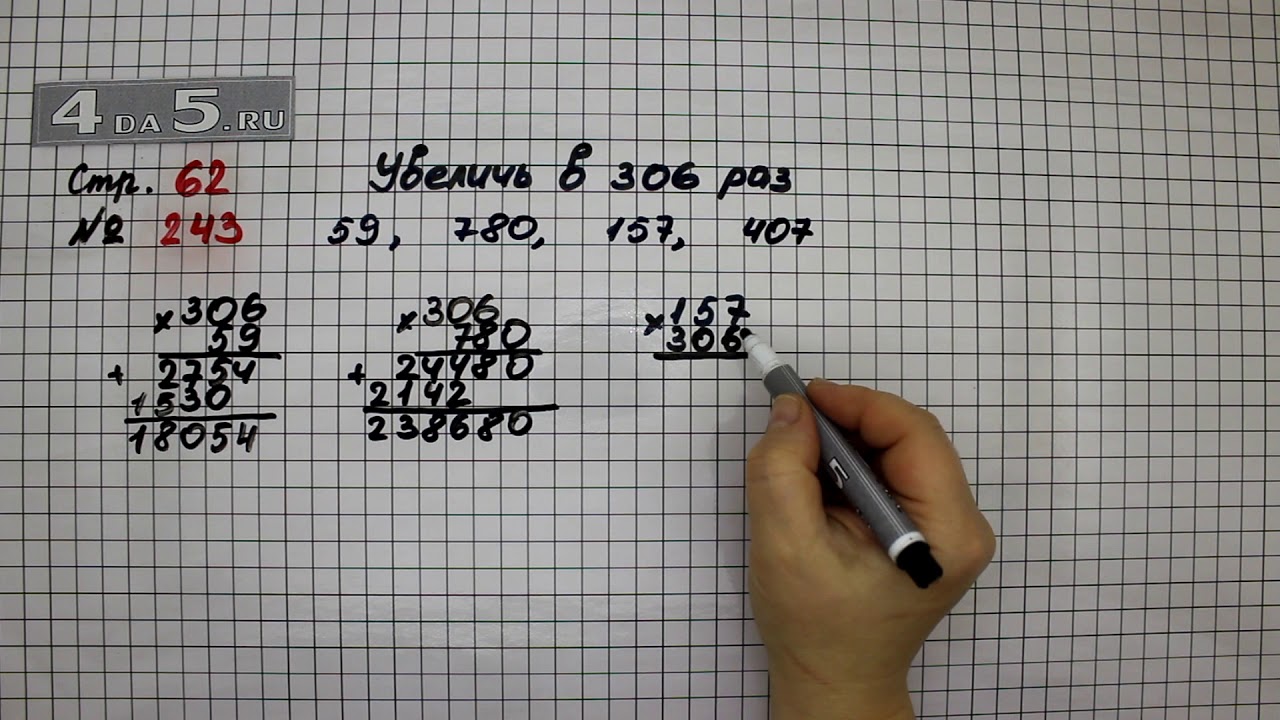 4DA5.RU
Стр. 62 Увеличь в 306 раз
№ 243 59, 780, 157, 407
×306
59
+ 2754
1530
18054
×306
780
+ 24480
2142
238680
×157
306
5